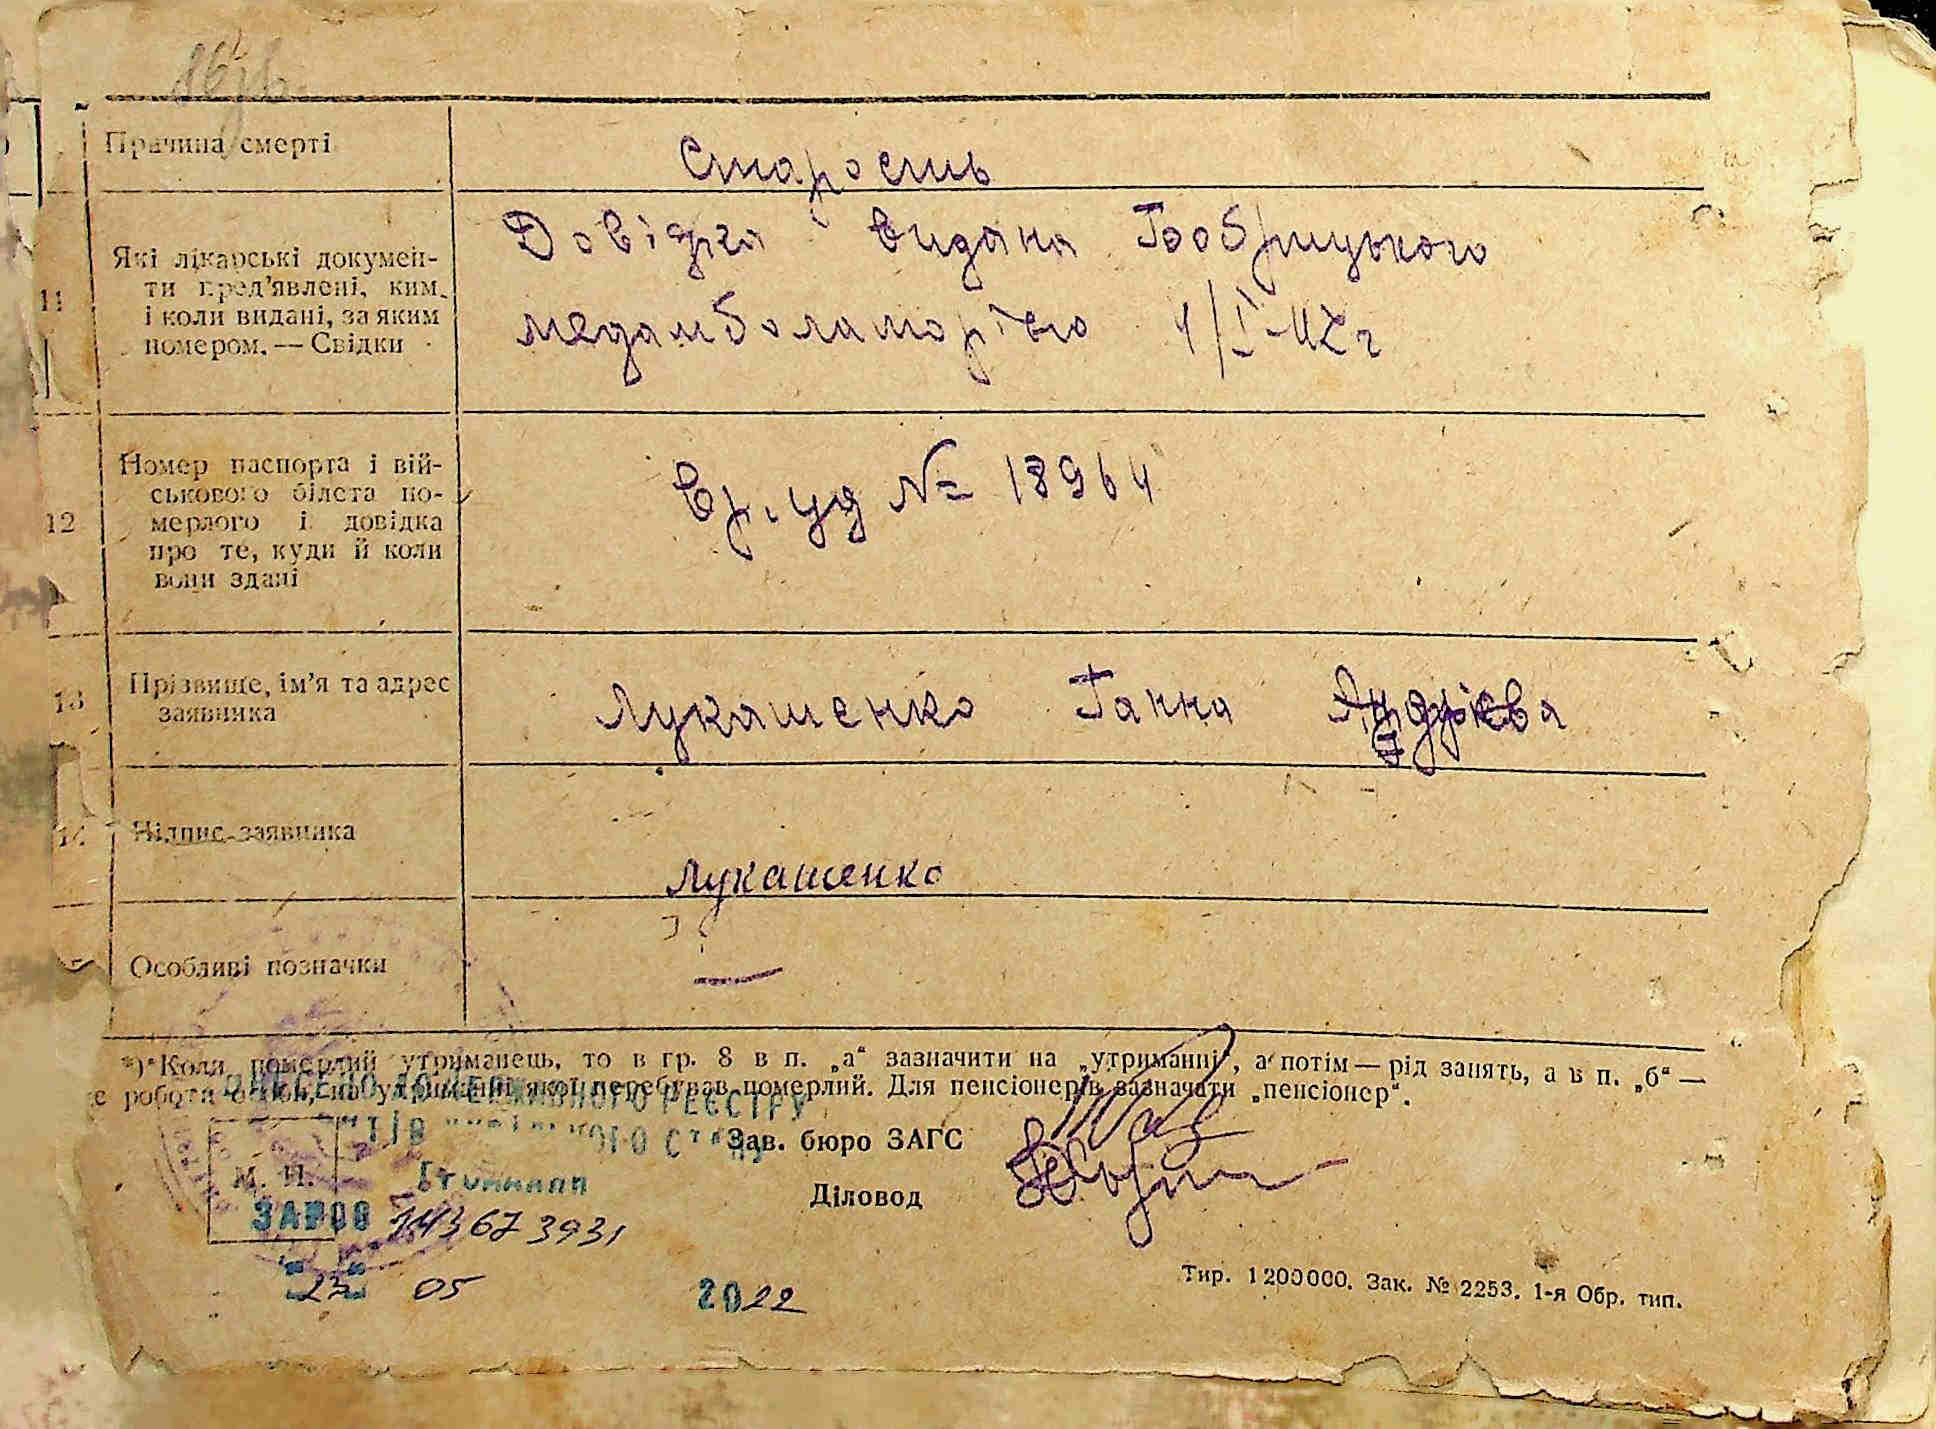 Причина смерті
Старость
11
Які лікарські докумен-
ти пред'явлені, ким
і коли видані, за яким
номером. — Свідки
Довідка видана Бобрицького
медамболаторією 4/I-47г
12
Номер паспорта і вій-
ськового білета по-
мерлого і довідка
про те, куди й коли
вони здані
Вр. уд № 18964
13
Прізвище, ім'я та адрес
заявника
Лукашенко Ганна
14
Підпис заявника
Лукашенко
Особливі позначки
—
*) Коли померлий утриманець, то в гр. 8 в п. „а“ зазначити на „утриманні“, а потім — рід занять, а в п. „б“ —
е робота особи, на утриманні якої перебував померлий. Для пенсіонерів зазначати „пенсіонер“.
РЕЄСТРУ
Зав. бюро ЗАГС
М. П.
Діловод
2022
05
Тир. 1200000. Зак. № 2253. 1-я Обр. тип.